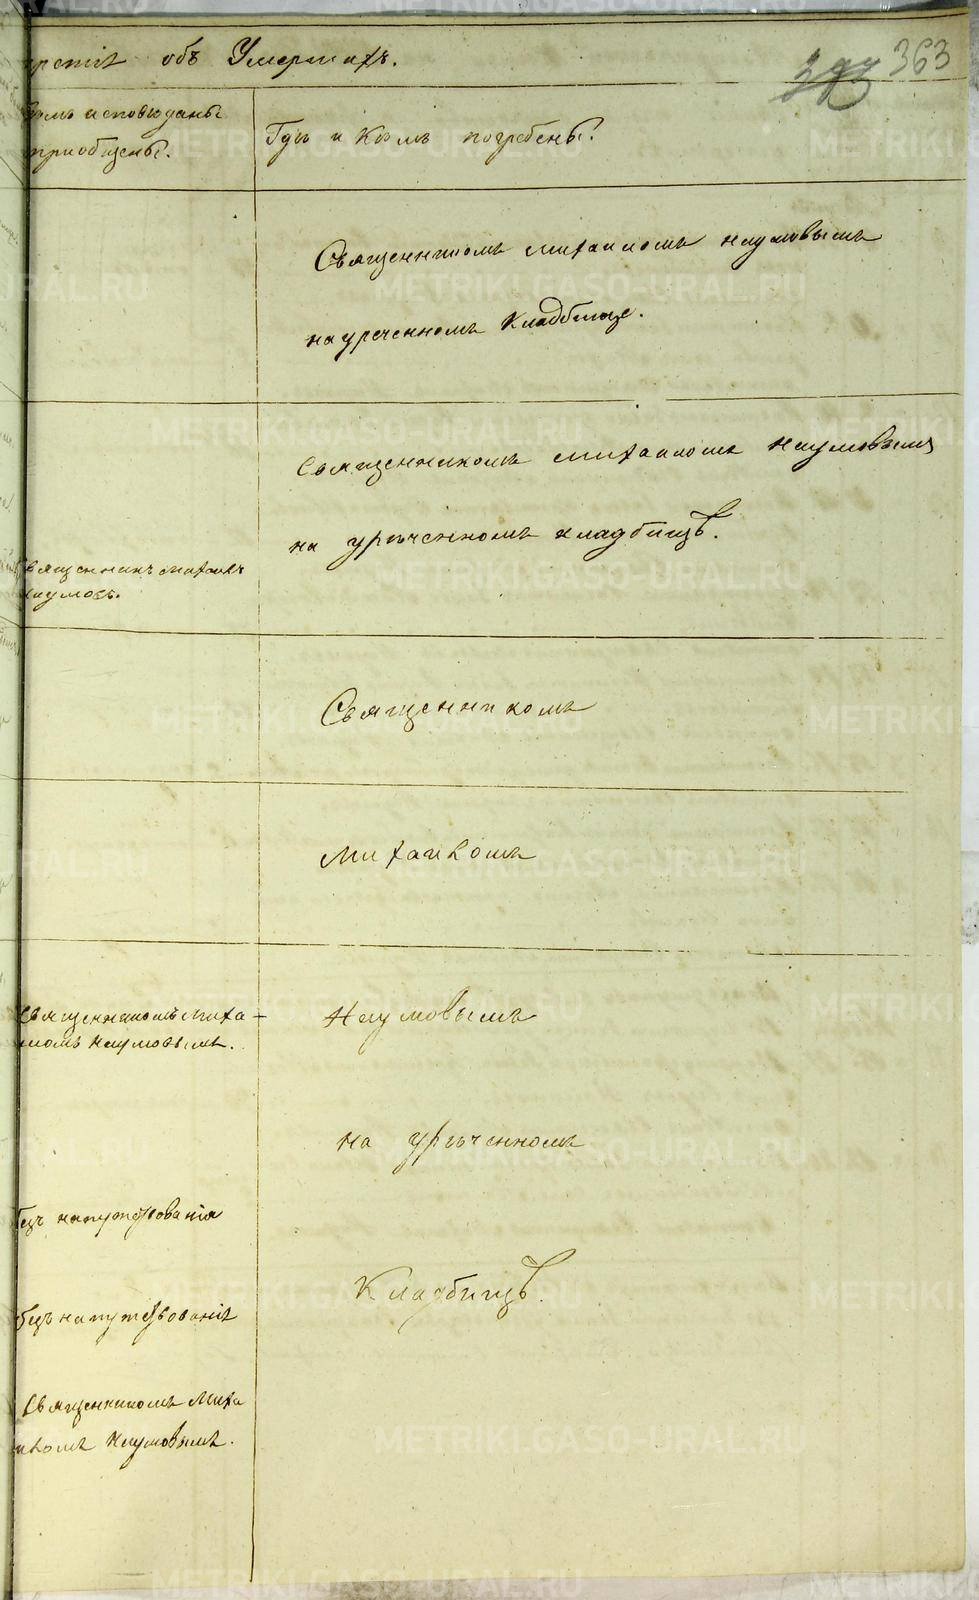 третія объ Умершихъ.
363
Кѣмъ исповѣданы
приобщены.
Гдѣ и Кѣмъ погребены.
Священникомъ Михаиломъ Наумовымъ
на уреченномъ Кладбище.
Священникомъ Михаиломъ Наумовымъ
на урѣченномъ кладбищѣ.
Священникъ Михаилъ
Наумовъ.
Священникомъ
Михаиломъ
Священникомъ Миха-
иломъ Наумовымъ.
Наумовымъ
на урѣченномъ
безъ напутствованія
Кладбищѣ.
безъ напутствованія
Священникомъ Миха
иломъ Наумовымъ.
METRIKI.GASO-URAL.RU